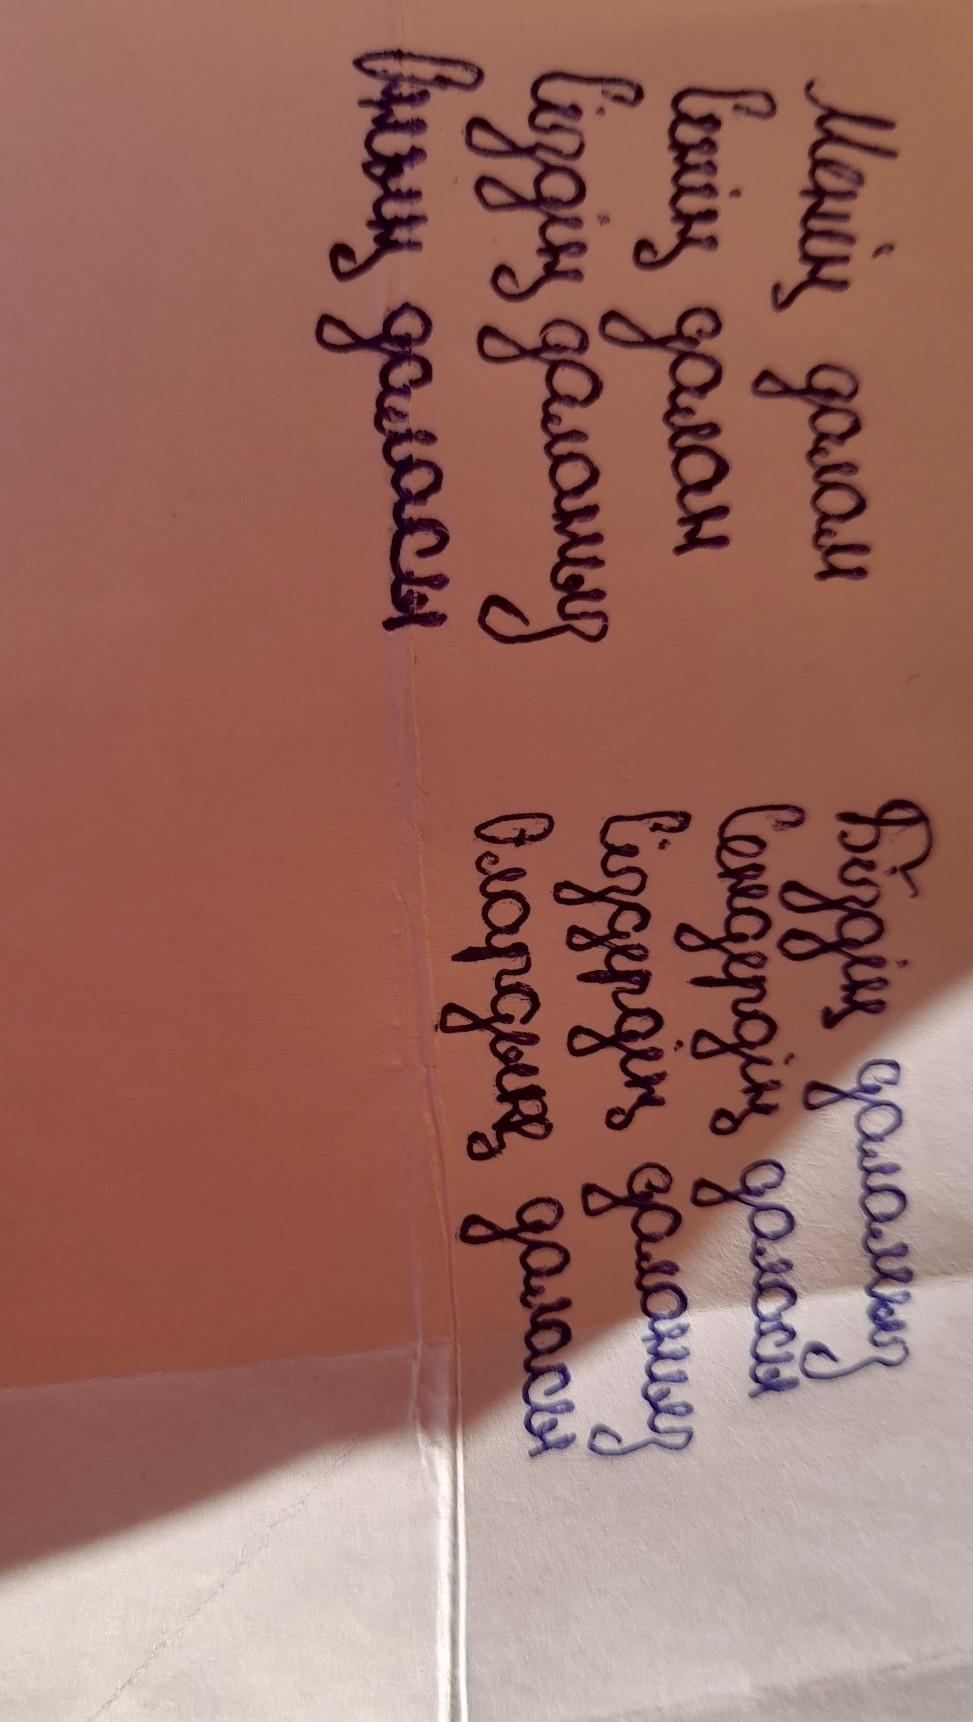 Менің далам
Сенің далан
Сіздің даланыз
Оның даласы
Біздің даламыз
Сендердің даласы
Сіздердің даланыз
Олардың даласы